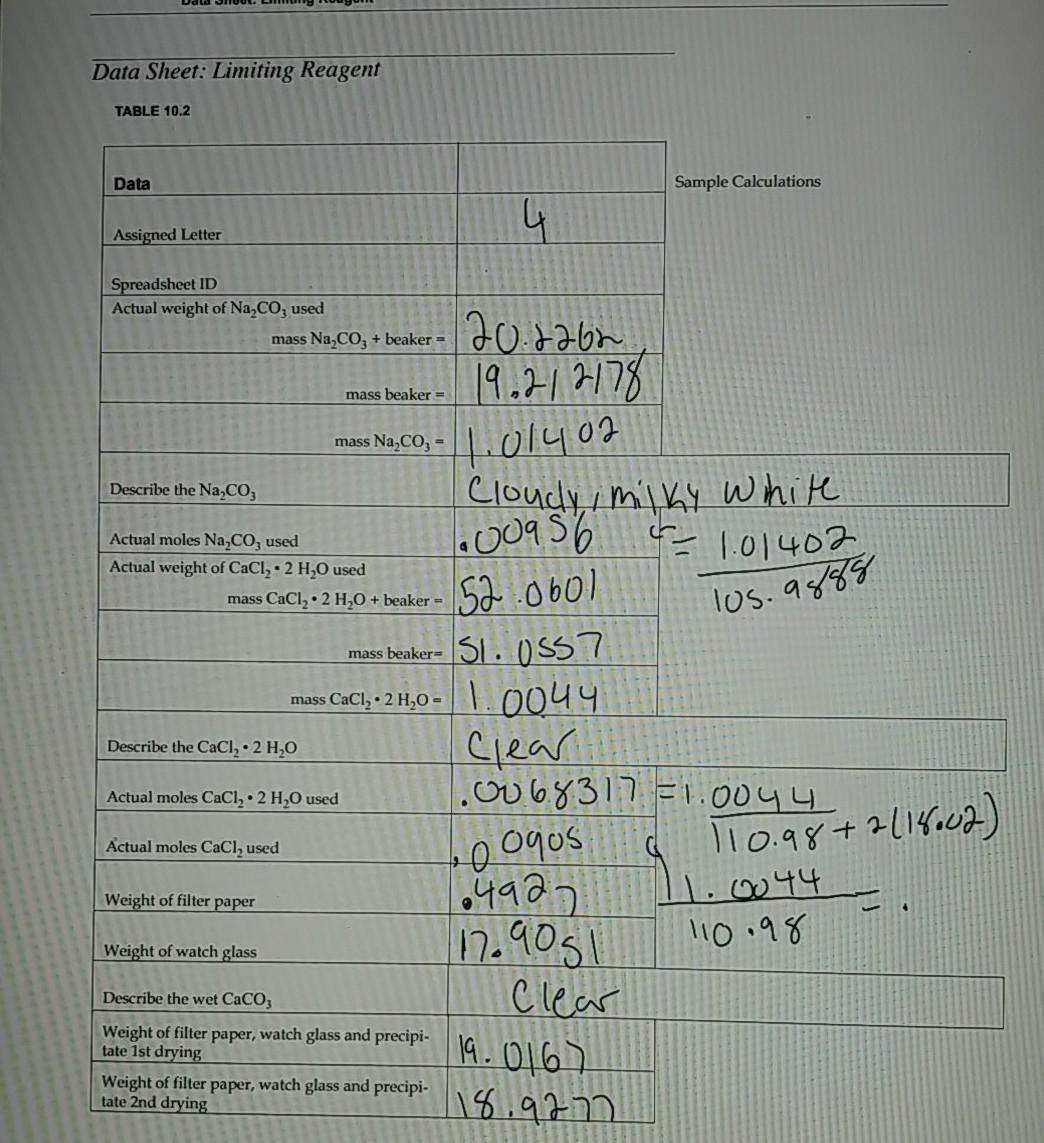 Data Sheet: Limiting Reagent
Data Sheet: Limiting Reagent
TABLE 10.2
Data
Sample Calculations
Assigned Letter 4
Spreadsheet ID
Actual weight of Na₂CO₃ used
mass Na₂CO₃ + beaker = 20.2262
mass beaker = 19.212178
mass Na₂CO₃ = 1.01402
Describe the Na₂CO₃ Cloudy, milky white
Actual moles Na₂CO₃ used .00956 = 1.01402
105.9888
Actual weight of CaCl₂ • 2 H₂O used
mass CaCl₂ • 2 H₂O + beaker = 52.0601
mass beaker= 51.0557
mass CaCl₂ • 2 H₂O = 1.0044
Describe the CaCl₂ • 2 H₂O Clear
Actual moles CaCl₂ • 2 H₂O used .0068317 = 1.0044
110.98 + 2(18.02)
Actual moles CaCl₂ used .00905
Weight of filter paper .4927 1.0044 = .
110.98
Weight of watch glass 17.9051
Describe the wet CaCO₃ Clear
Weight of filter paper, watch glass and precipi-
tate 1st drying 19.0167
Weight of filter paper, watch glass and precipi-
tate 2nd drying 18.9277